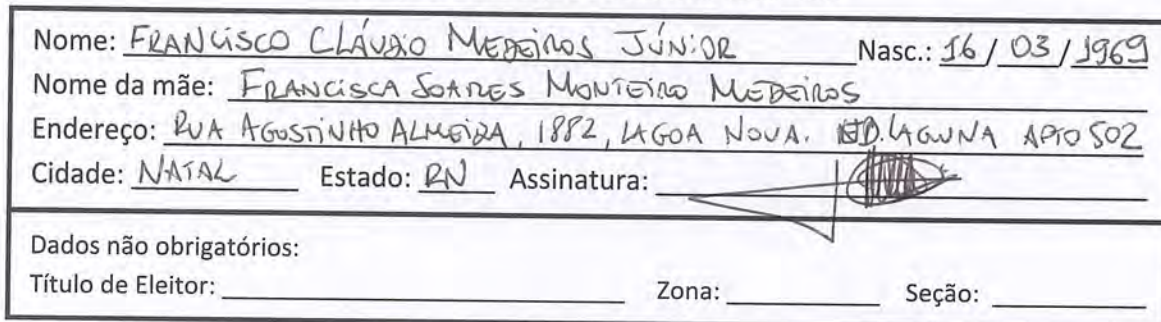 Nome: FRANCISCO CLÁUDIO MEDEIROS JÚNIOR Nasc.: 16 / 03 / 1969
Nome da mãe: FRANCISCA SOARES MONTEIRO MEDEIROS
Endereço: RUA AGOSTINHO ALMEIDA, 1882, LAGOA NOVA. ED. LAGUNA APTO 502
Cidade: NATAL Estado: RN Assinatura:
Dados não obrigatórios:
Título de Eleitor: Zona: Seção: